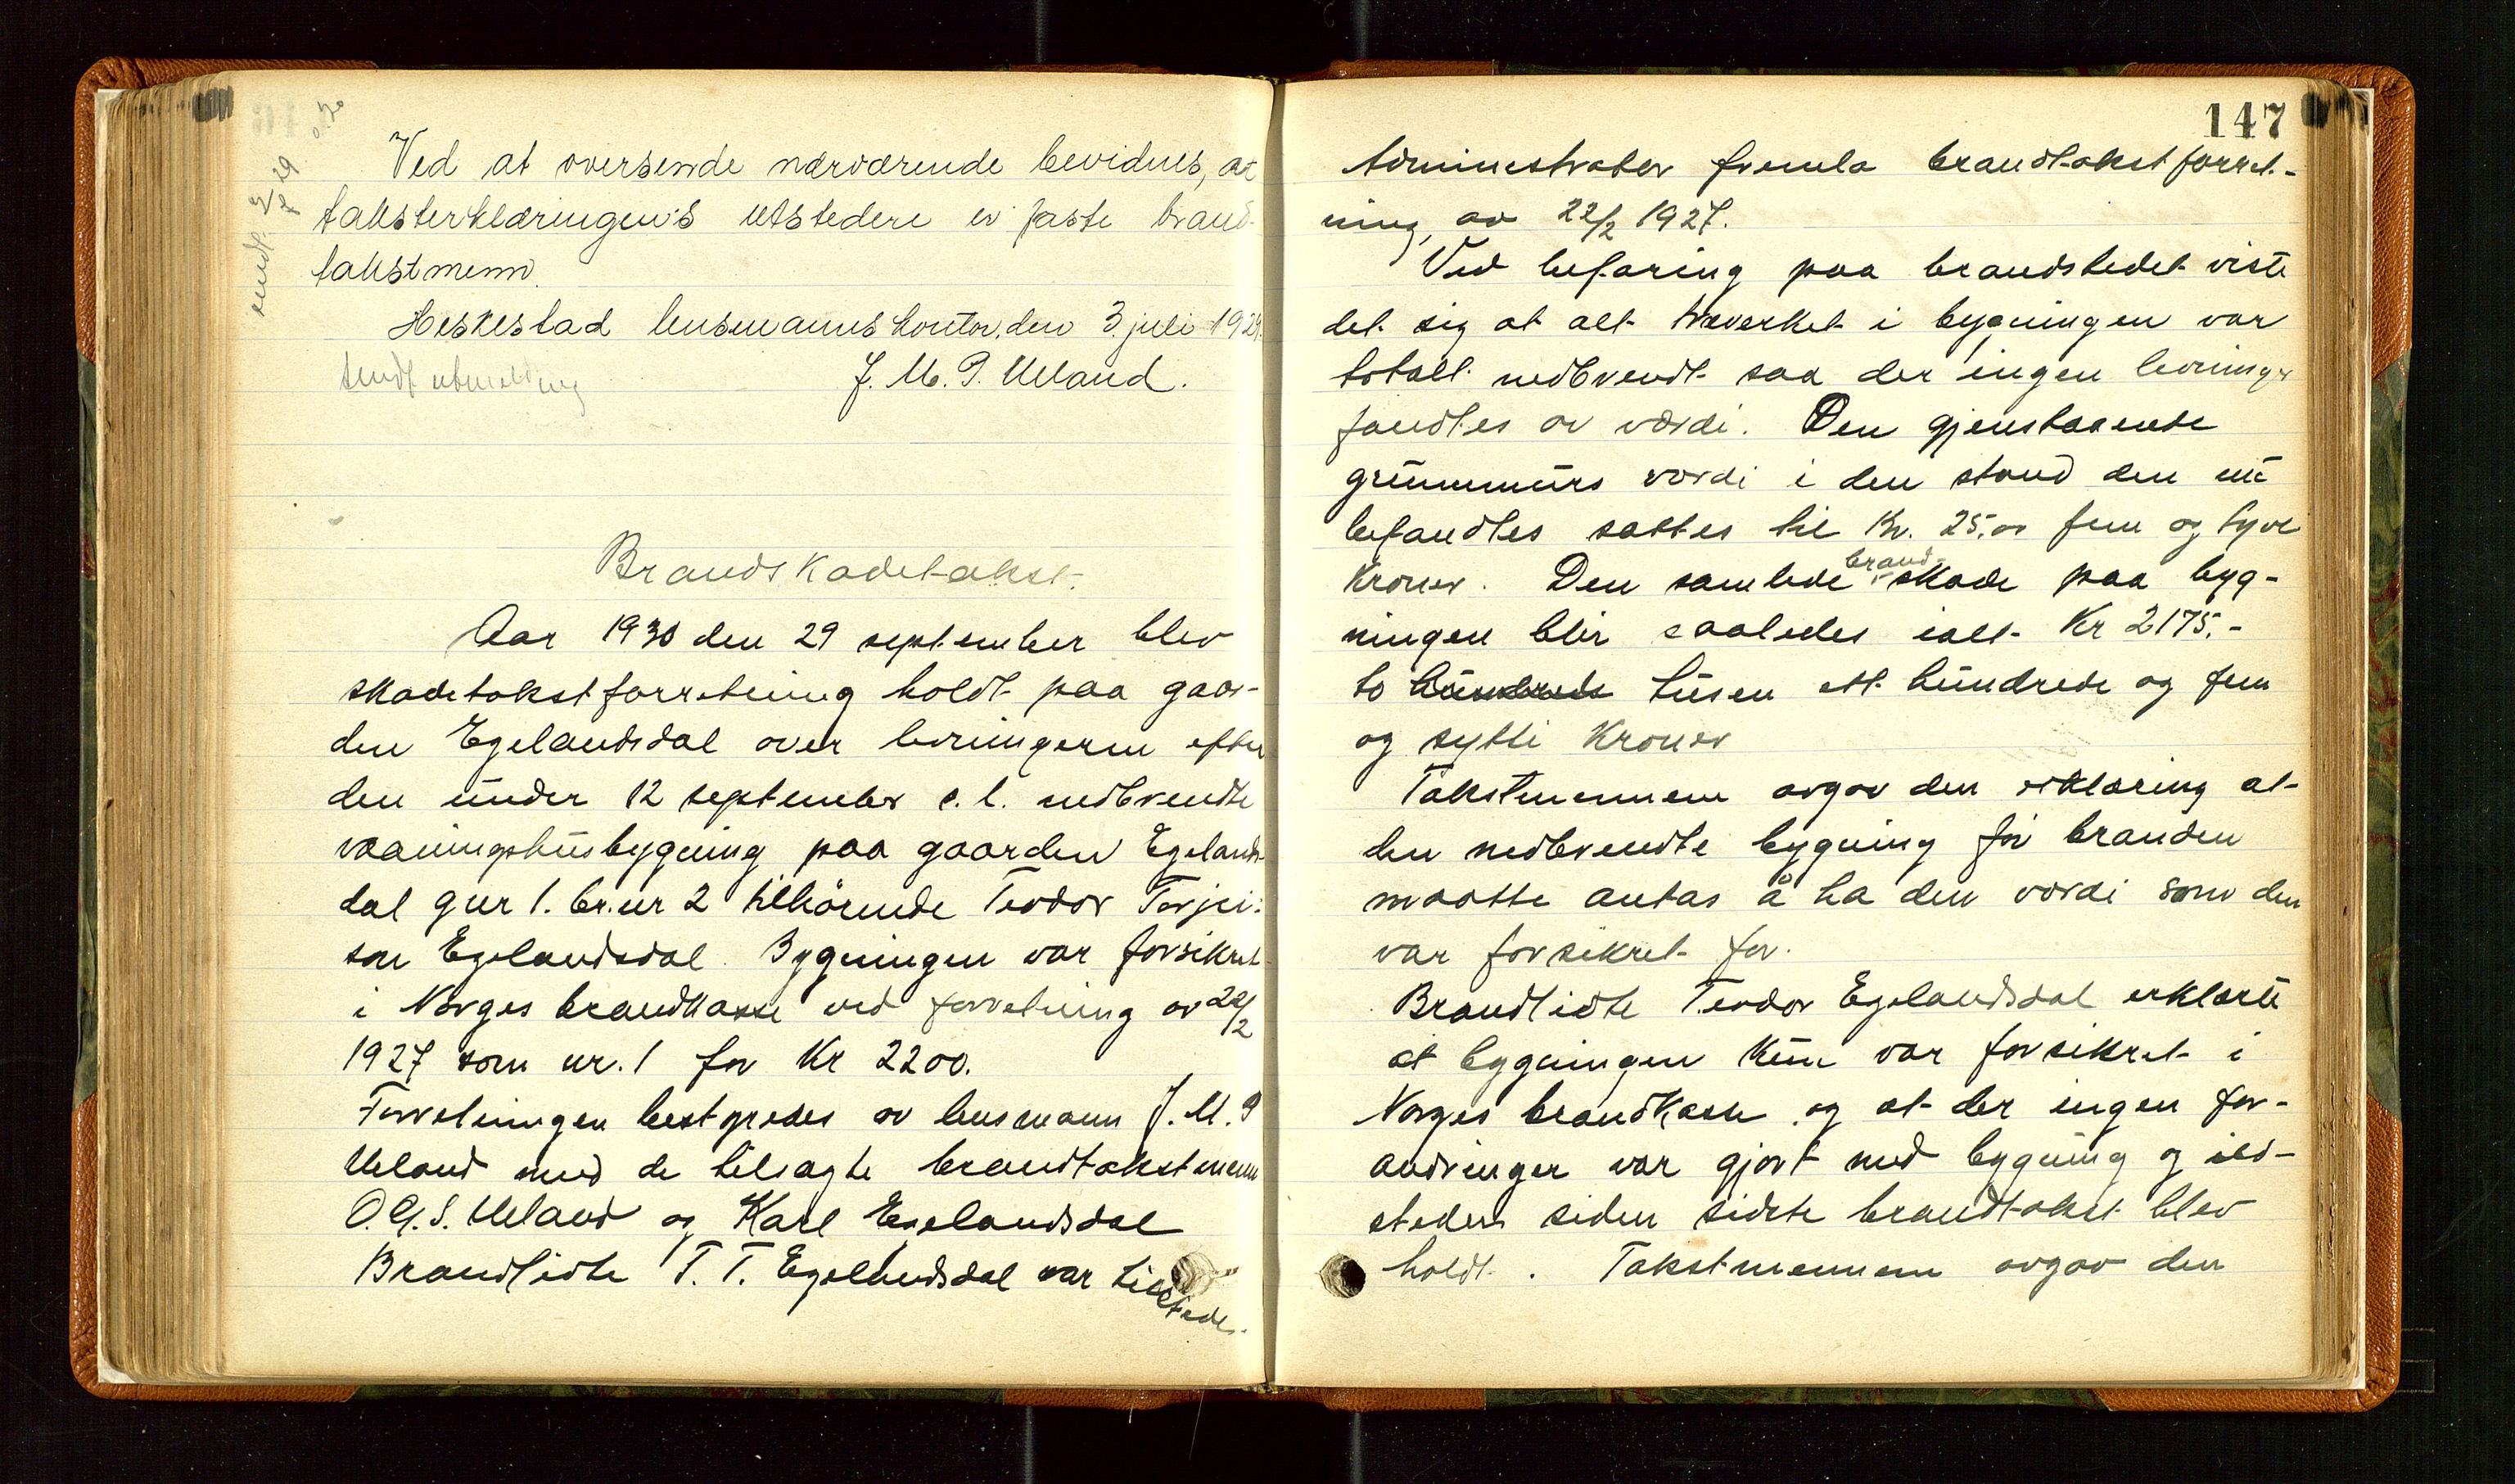 sendt 3/7 29
Ved at oversende nærværende bevidnes, at
taksterklæringens utstedere er faste brand-
takstmenn.
Heskestad lensmannskontor, den 3. juli 1929.
J. M. P. Ueland.
sendt utmelding
Brandskadetakst.
Aar 1930 den 29 september blev
skadetakstforretning holdt paa gaar-
den Egelandsdal over levningerne efter
den under 12 september s. l. nedbrendte
vaaningshusbygning paa gaarden Egelands-
dal gnr 1. br.nr 2 tilhörende Teodor Torjei-
son Egelandsdal. Bygningen var forsikret
i Norges brandkasse ved forretning av 22/2
1927 som nr. 1 for Kr 2200.
Forretningen bestyredes av lensmann J. M. P
Ueland med de tilsagte brandtakstmenn
O. G. S. Ueland og Karl Egelandsdal
Brandlidte T. T. Egelandsdal var tilstede.
147
Administrator fremla brandtakstforret-
ning av 22/2 1927.
Ved befaring paa brandstedet viste
det sig at alt træverket i bygningen var
totalt nedbrendt saa der ingen levninger
fandtes av værdi. Den gjenstaaende
grunnmurs værdi i den stand den nu
befandtes sattes til Kr. 25,00 fem og tyve
Kroner. Den samlede brand-skade paa byg-
ningen blir saaledes ialt Kr 2175.-
to hundrede tusen ett hundrede og fem
og sytti Kroner
Takstmennene avgav den erklæring at
den nedbrendte bygning för branden
maatte antas å ha den værdi som den
var forsikret for.
Brandlidte Teodor Egelandsdal erklærte
at bygningen kun var forsikret i
Norges brandkasse og at der ingen for-
andringer var gjort med bygning og ild-
steder siden sidste brandtakst blev
holdt. Takstmennene avgav den